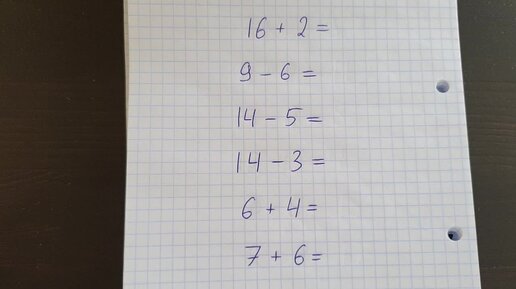 16 + 2 =
9 - 6 =
14 - 5 =
14 - 3 =
6 + 4 =
7 + 6 =